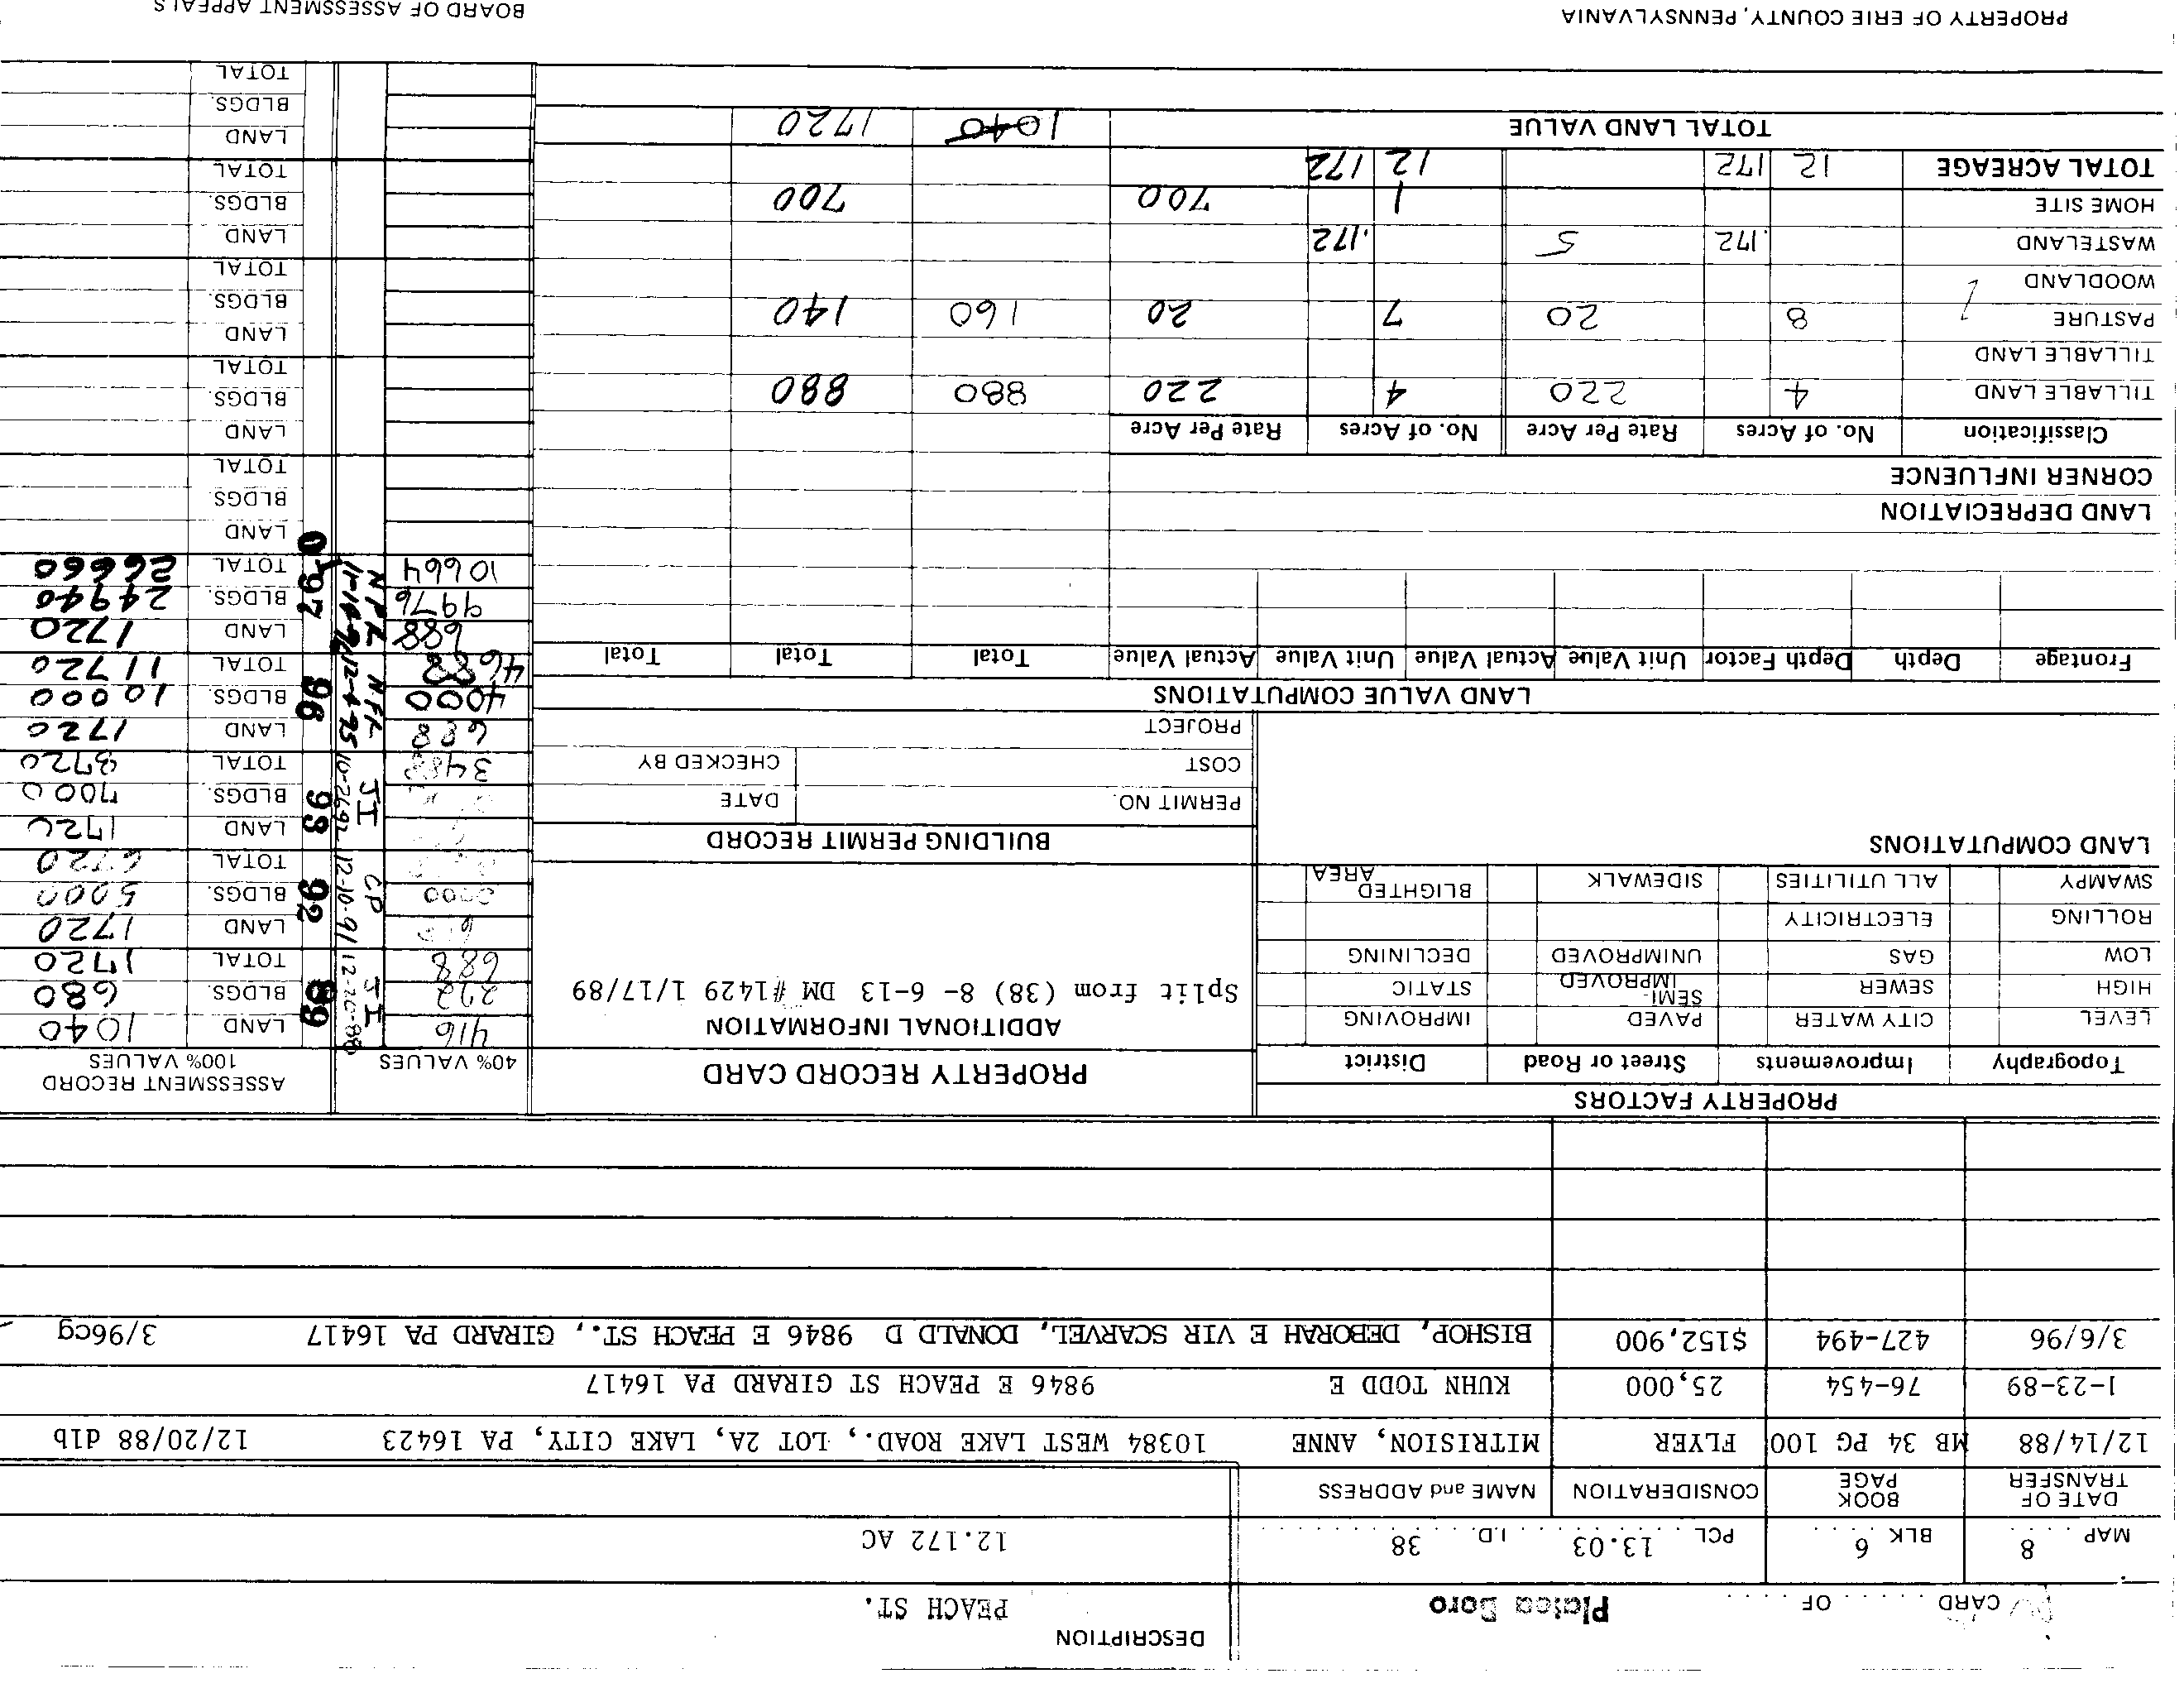 CARD . . . . . OF . . . . . Platea Boro
DESCRIPTION
PEACH ST.
MAP 8 BLK 6 PCL 13.03 I.D. 38 12.172 AC
DATE OF TRANSFER BOOK PAGE CONSIDERATION NAME and ADDRESS
12/14/88 MB 34 PG 100 FLYER MITRISION, ANNE 10384 WEST LAKE ROAD., LOT 2A, LAKE CITY, PA 16423 12/20/88 dlb
1-23-89 76-454 25,000 KUHN TODD E 9846 E PEACH ST GIRARD PA 16417
3/6/96 427-494 $152,900 BISHOP, DEBORAH E VIR SCARVEL, DONALD D 9846 E PEACH ST., GIRARD PA 16417 3/96cg
PROPERTY FACTORS
Topography Improvements Street or Road District
LEVEL CITY WATER PAVED IMPROVING
HIGH SEWER SEMI-IMPROVED STATIC
LOW GAS UNIMPROVED DECLINING
ROLLING ELECTRICITY
SWAMPY ALL UTILITIES SIDEWALK BLIGHTED AREA
LAND COMPUTATIONS
PROPERTY RECORD CARD
ADDITIONAL INFORMATION
Split from (38) 8- 6-13 DM #1429 1/17/89
BUILDING PERMIT RECORD
PERMIT NO. DATE
COST CHECKED BY
PROJECT
40% VALUES ASSESSMENT RECORD 100% VALUES
416 JI 12-20-88 89 LAND 1040
272 BLDGS. 680
688 TOTAL 1720
CP 12-10-91 92 LAND 1720
2000 BLDGS. 5000
TOTAL 6720
JI 10-26-92 93 LAND 1720
BLDGS. 7000
3488 TOTAL 8720
688 NFR 12-4-95 96 LAND 1720
4000 BLDGS 10000
4688 TOTAL 11720
688 NPR 97 LAND 1720
9976 BLDGS. 24940
10664 TOTAL 26660
LAND
BLDGS.
TOTAL
LAND
BLDGS.
TOTAL
LAND
BLDGS.
TOTAL
LAND
BLDGS.
TOTAL
LAND
BLDGS.
TOTAL
LAND VALUE COMPUTATIONS
Frontage Depth Depth Factor Unit Value Actual Value Unit Value Actual Value Total Total Total
LAND DEPRECIATION
CORNER INFLUENCE
Classification No. of Acres Rate Per Acre No. of Acres Rate Per Acre
TILLABLE LAND 4 220 4 220 880 880
TILLABLE LAND
PASTURE 8 20 7 20 160 140
WOODLAND
WASTELAND .172 5 .172
HOME SITE 1 700 700
TOTAL ACREAGE 12 172 12 172
TOTAL LAND VALUE 1040 1720
PROPERTY OF ERIE COUNTY, PENNSYLVANIA BOARD OF ASSESSMENT APPEALS